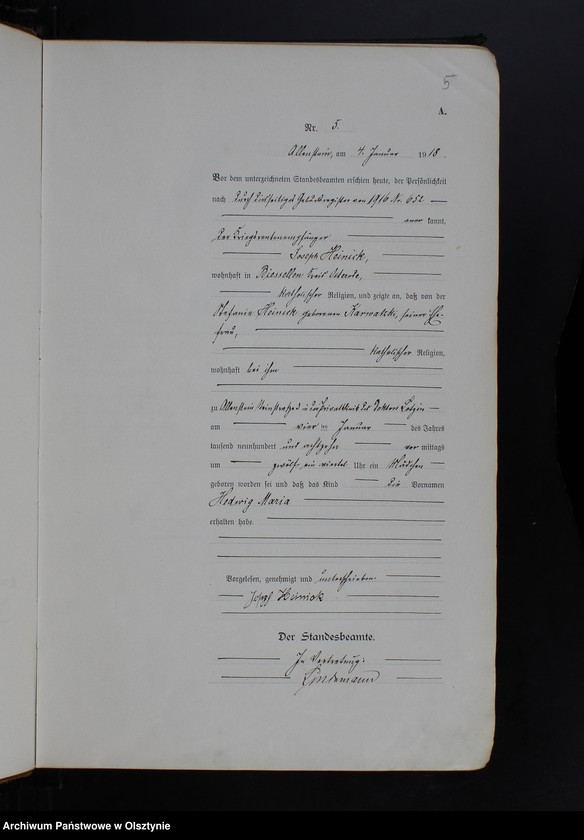 5
A.
Nr. 5.
Allenstein, am 4. Januar 1918.
Vor dem unterzeichneten Standesbeamten erschien heute, der Persönlichkeit
nach durch diesseitiges Geburtsregister von 1916 Nr. 652
aner kannt,
der Kriegsrentenempfänger
Joseph Heinick,
wohnhaft in Biessellen Kreis Osterode,
katholischer Religion, und zeigte an, daß von der
Stefanie Heinick geborenen Karwatzki, seiner Ehe-
frau,
katholischer Religion,
wohnhaft bei ihm
zu Allenstein in der Privatklinik des Doktors
am vier ten Januar des Jahres
tausend neunhundert und achtzehn vor mittags
um zwölf ein viertel Uhr ein Mädchen
geboren worden sei und daß das Kind die Vornamen
Hedwig Maria
erhalten habe.
Vorgelesen, genehmigt und unterschrieben
Joseph Heinick
Der Standesbeamte.
In Vertretung:
Lindemann
Archiwum Państwowe w Olsztynie